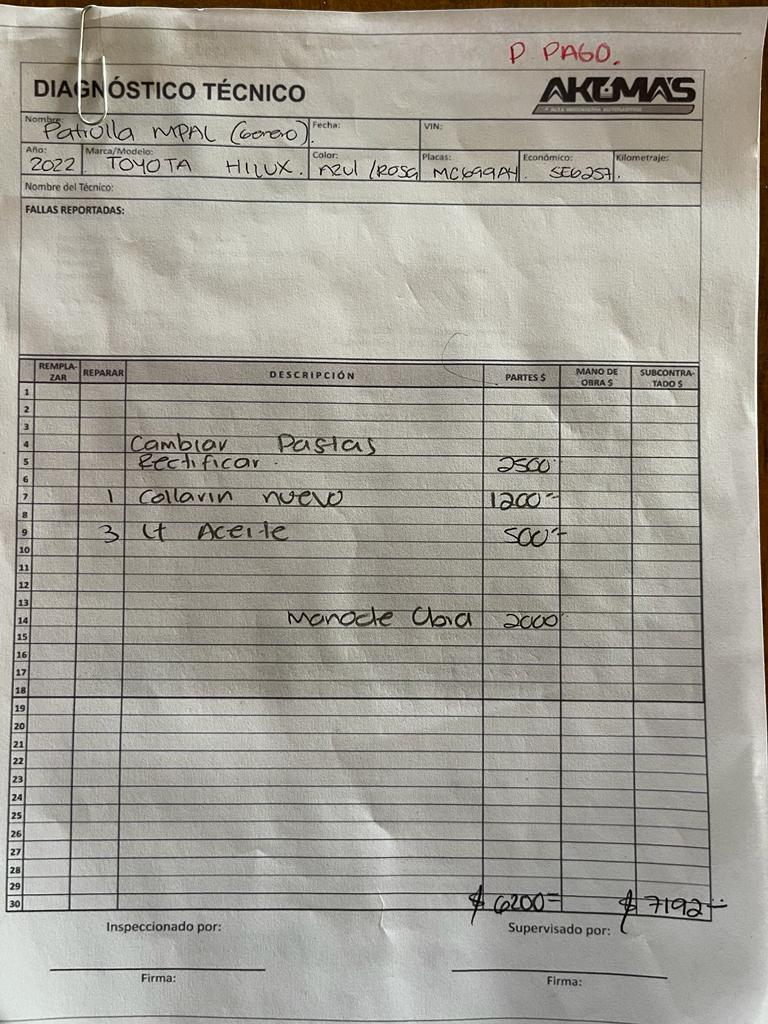 P PAGO.
DIAGNÓSTICO TÉCNICO
AKUMA'S
Nombre: Patrulla MPAL (Genero). Fecha: VIN:
Año: 2022 Marca/Modelo: TOYOTA HILUX. Color: AZUL/ROSA Placas: MC699A4. Económico: SE6257. Kilometraje:
Nombre del Técnico:
FALLAS REPORTADAS:
REMPLA-ZAR REPARAR DESCRIPCIÓN PARTES $ MANO DE OBRA $ SUBCONTRA-TADO $
1
2
3
4 Cambiar Pastas
5 Rectificar. 2500
6
7 1 Collarin nuevo 1200-
8
9 3 Lt Aceite 500-
10
11
12
13
14 Mano de Obra 2000
15
16
17
18
19
20
21
22
23
24
25
26
27
28
29
30 $ 6200= $ 7192
Inspeccionado por: Supervisado por:
Firma: Firma: